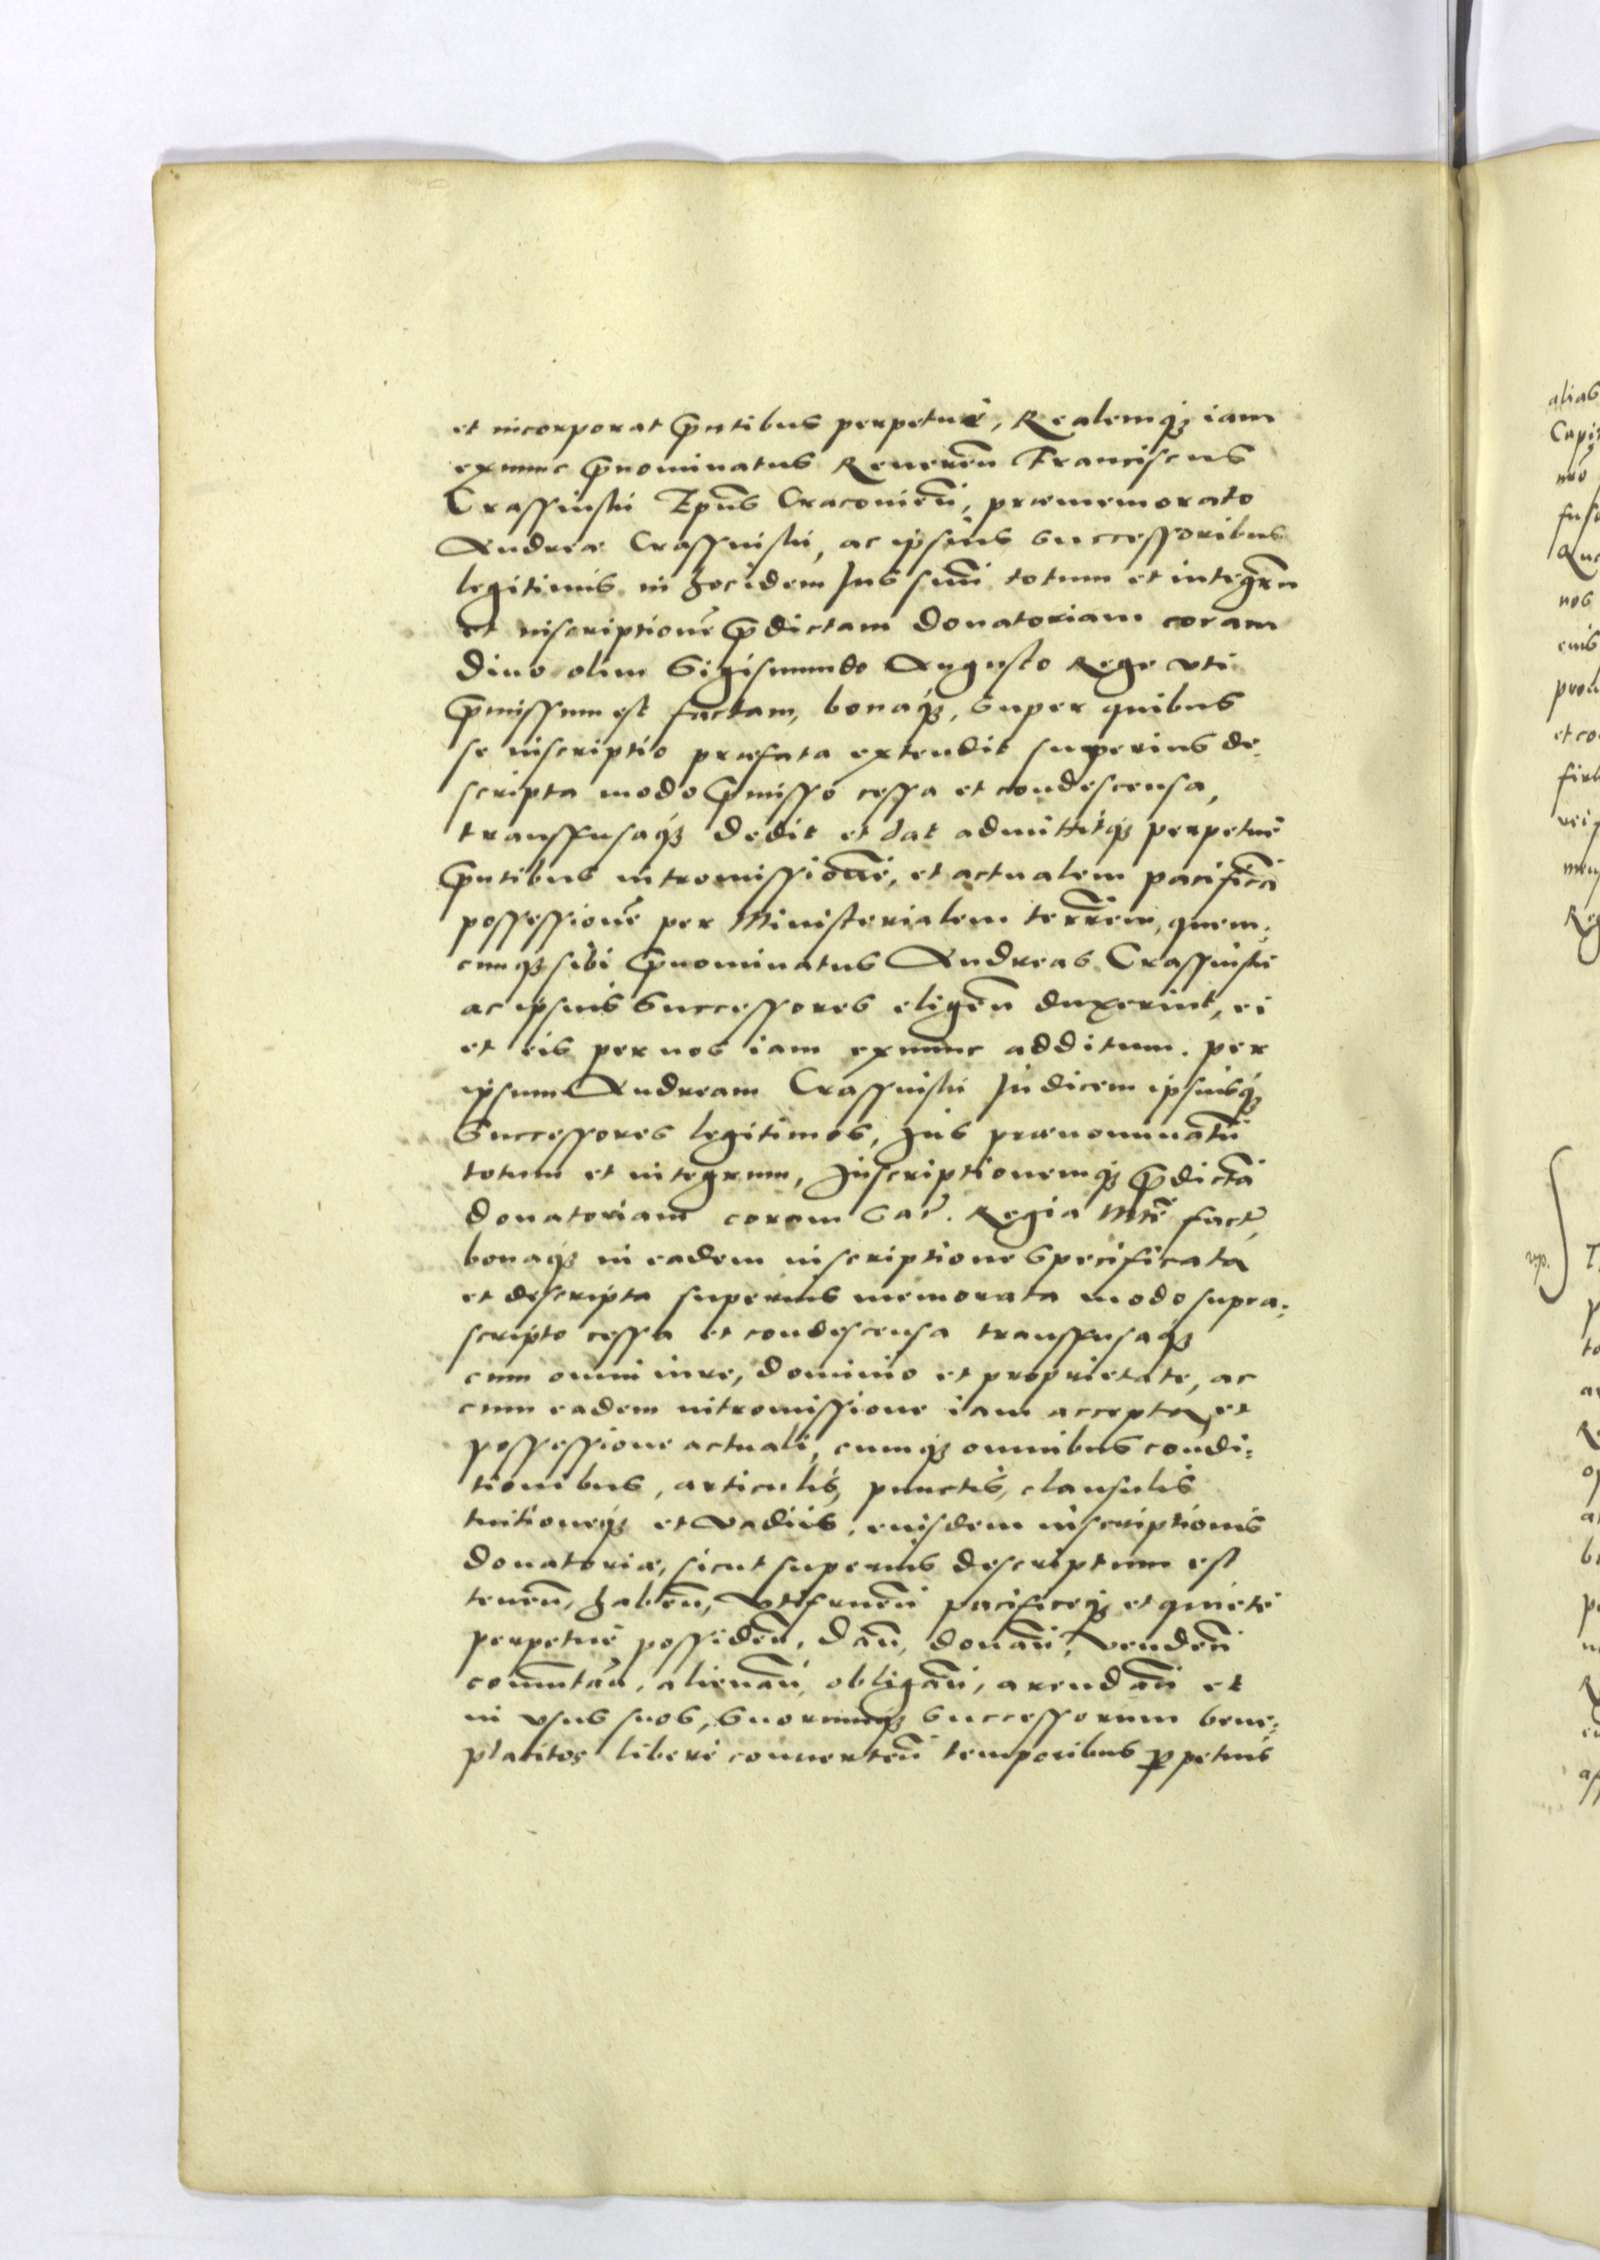 et incorporat pñtibus perpetuè, Realemq́ iam
exnunc p̃nominatus Reueren̄ Franciscus
Crassinski Ep̄us Cracovien̄, præmemorato
Andreæ Crassinski, ac ipsius successoribus
legitimis in hocidem Jus suū totum et integrū
et inscriptionē p̃dictam donatoriam coram
diuo olim Sigismundo Augusto Rege vti
p̃missum est factam, bonaq́, super quibus
se inscriptio præfata extendit superius de:
scripta modo p̃misso cessa et condescensa,
transfusaq́ dedit et dat admittitq́ perpetuè
p̃ntibus intromissionē, et actualem pacificā
possessionē per Ministerialem terrēm, quem:
cunq́ sibi p̃nominatus Andreas Crassinski
ac ipsius Successores eligen̄ duxerint, ei
et eis per nos iam exnunc additum. per
ipsum Andream Crassinski Judicem ipsiusq́
Successores legitimos, Jus prænominatū
totum et integrum, Inscriptionemq́ p̃dictā
donatoriam coram Sac̄. Regia Mtē fact̄,
bonaq́ in eadem inscriptione specificata
et descripta superius memorata modo supra:
scripto cessa et condescensa transfusaq́
cum omni iure, dominio et proprietate, ac
cum eadem intromissione iam accepta, et
possessione actuali, cumq́ omnibus condi:
tionibus, articulis, punctis, clausulis
tuitioneq́ et vadiis, eiusdem inscriptionis
donatoriæ, sicut superius descriptum est
tenen̄, haben̄, vtifruen̄ pacificeq́ et quietè
perpetuè possiden̄, dan̄, donan̄, venden̄
com̄utan̄, alienan̄, obligan̄, arendan̄ et
in vsus suos, suorumq́ successorum bene:
placitos liberè conuerten̄ temporibus ꝑpetuis
alias
nos
Reg